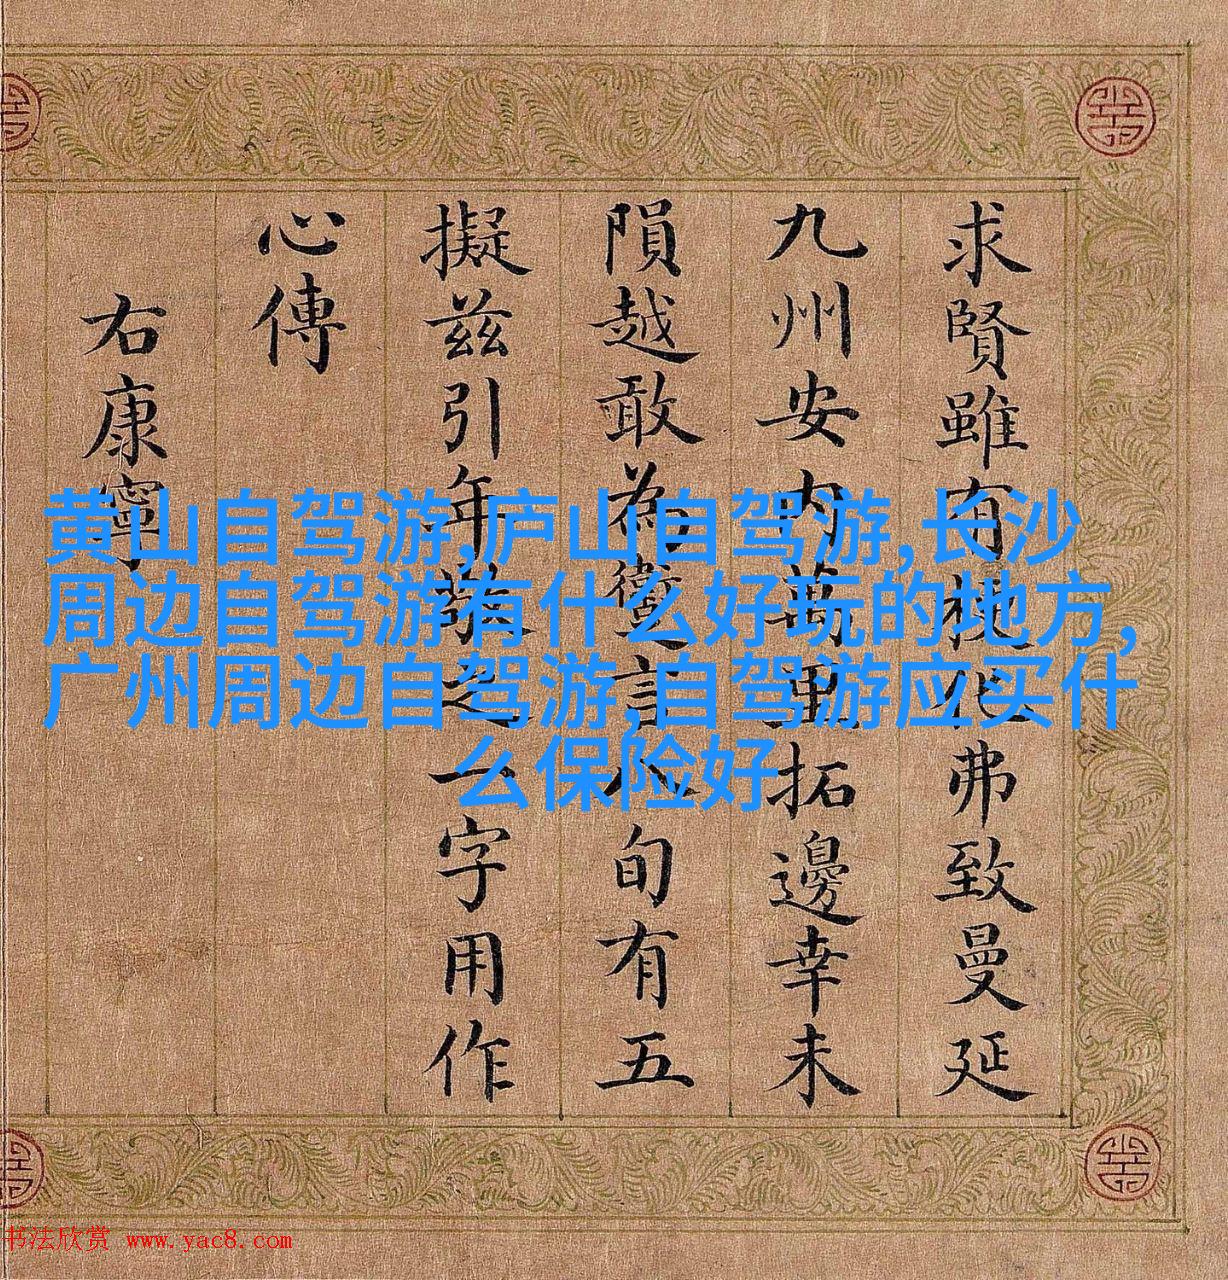 求賢雖有弗致曼延
九州安内萬里拓邊幸未
隕越敢為言八旬有五
擬茲引年敬之一字用作
心傳
右康寧
黄山自驾游,庐山自驾游,长沙
周边自驾游有什么好玩的地方,
广州周边自驾游,自驾游应买什
么保险好
书法欣赏 www.yac8.com